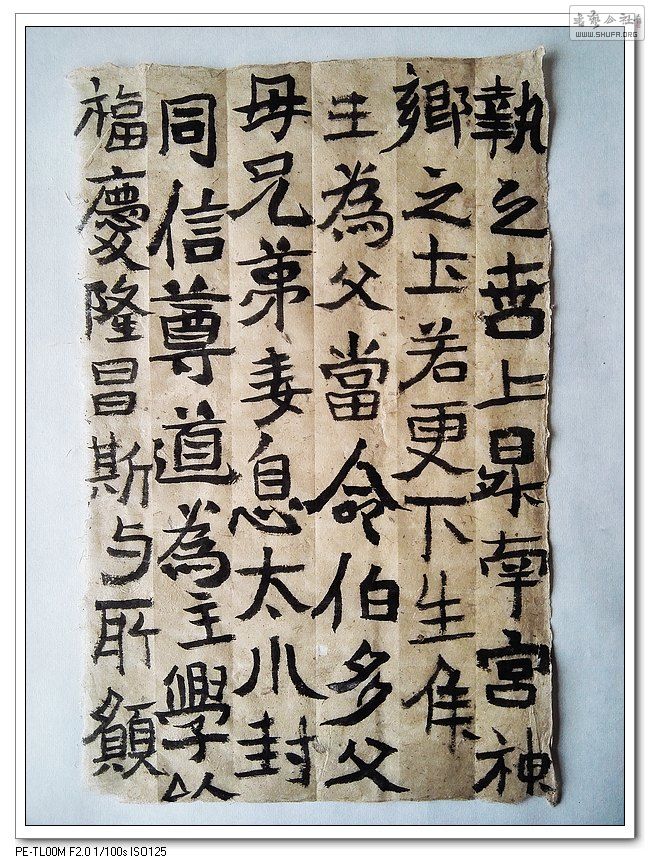 執之苦上昇南宮神
鄉之土若更下生侯
主為父當令伯多父
母兄弟妻息太小封
同信尊道為主學以
福慶隆昌斯与所願
WWW.SHUFA.ORG
PE-TL00M F2.0 1/100s ISO125